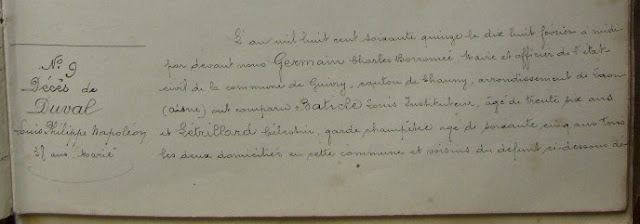 L'an mil huit cent soixante quinze le dix huit février à midi
par devant nous Germain Charles Borromée Maire et officier de l'état
civil de la commune de Guivry, canton de Chauny, arrondissement de Laon
(aisne) ont comparu Baticle Louis Instituteur, âgé de trente six ans
et Létrillard Célestin, garde champêtre âgé de soixante cinq ans tous
les deux domiciliés en cette commune et voisins du défunt ci-dessous dé-
N° 9
Décès de
Duval
Louis Philippe Napoléon
ans Marié